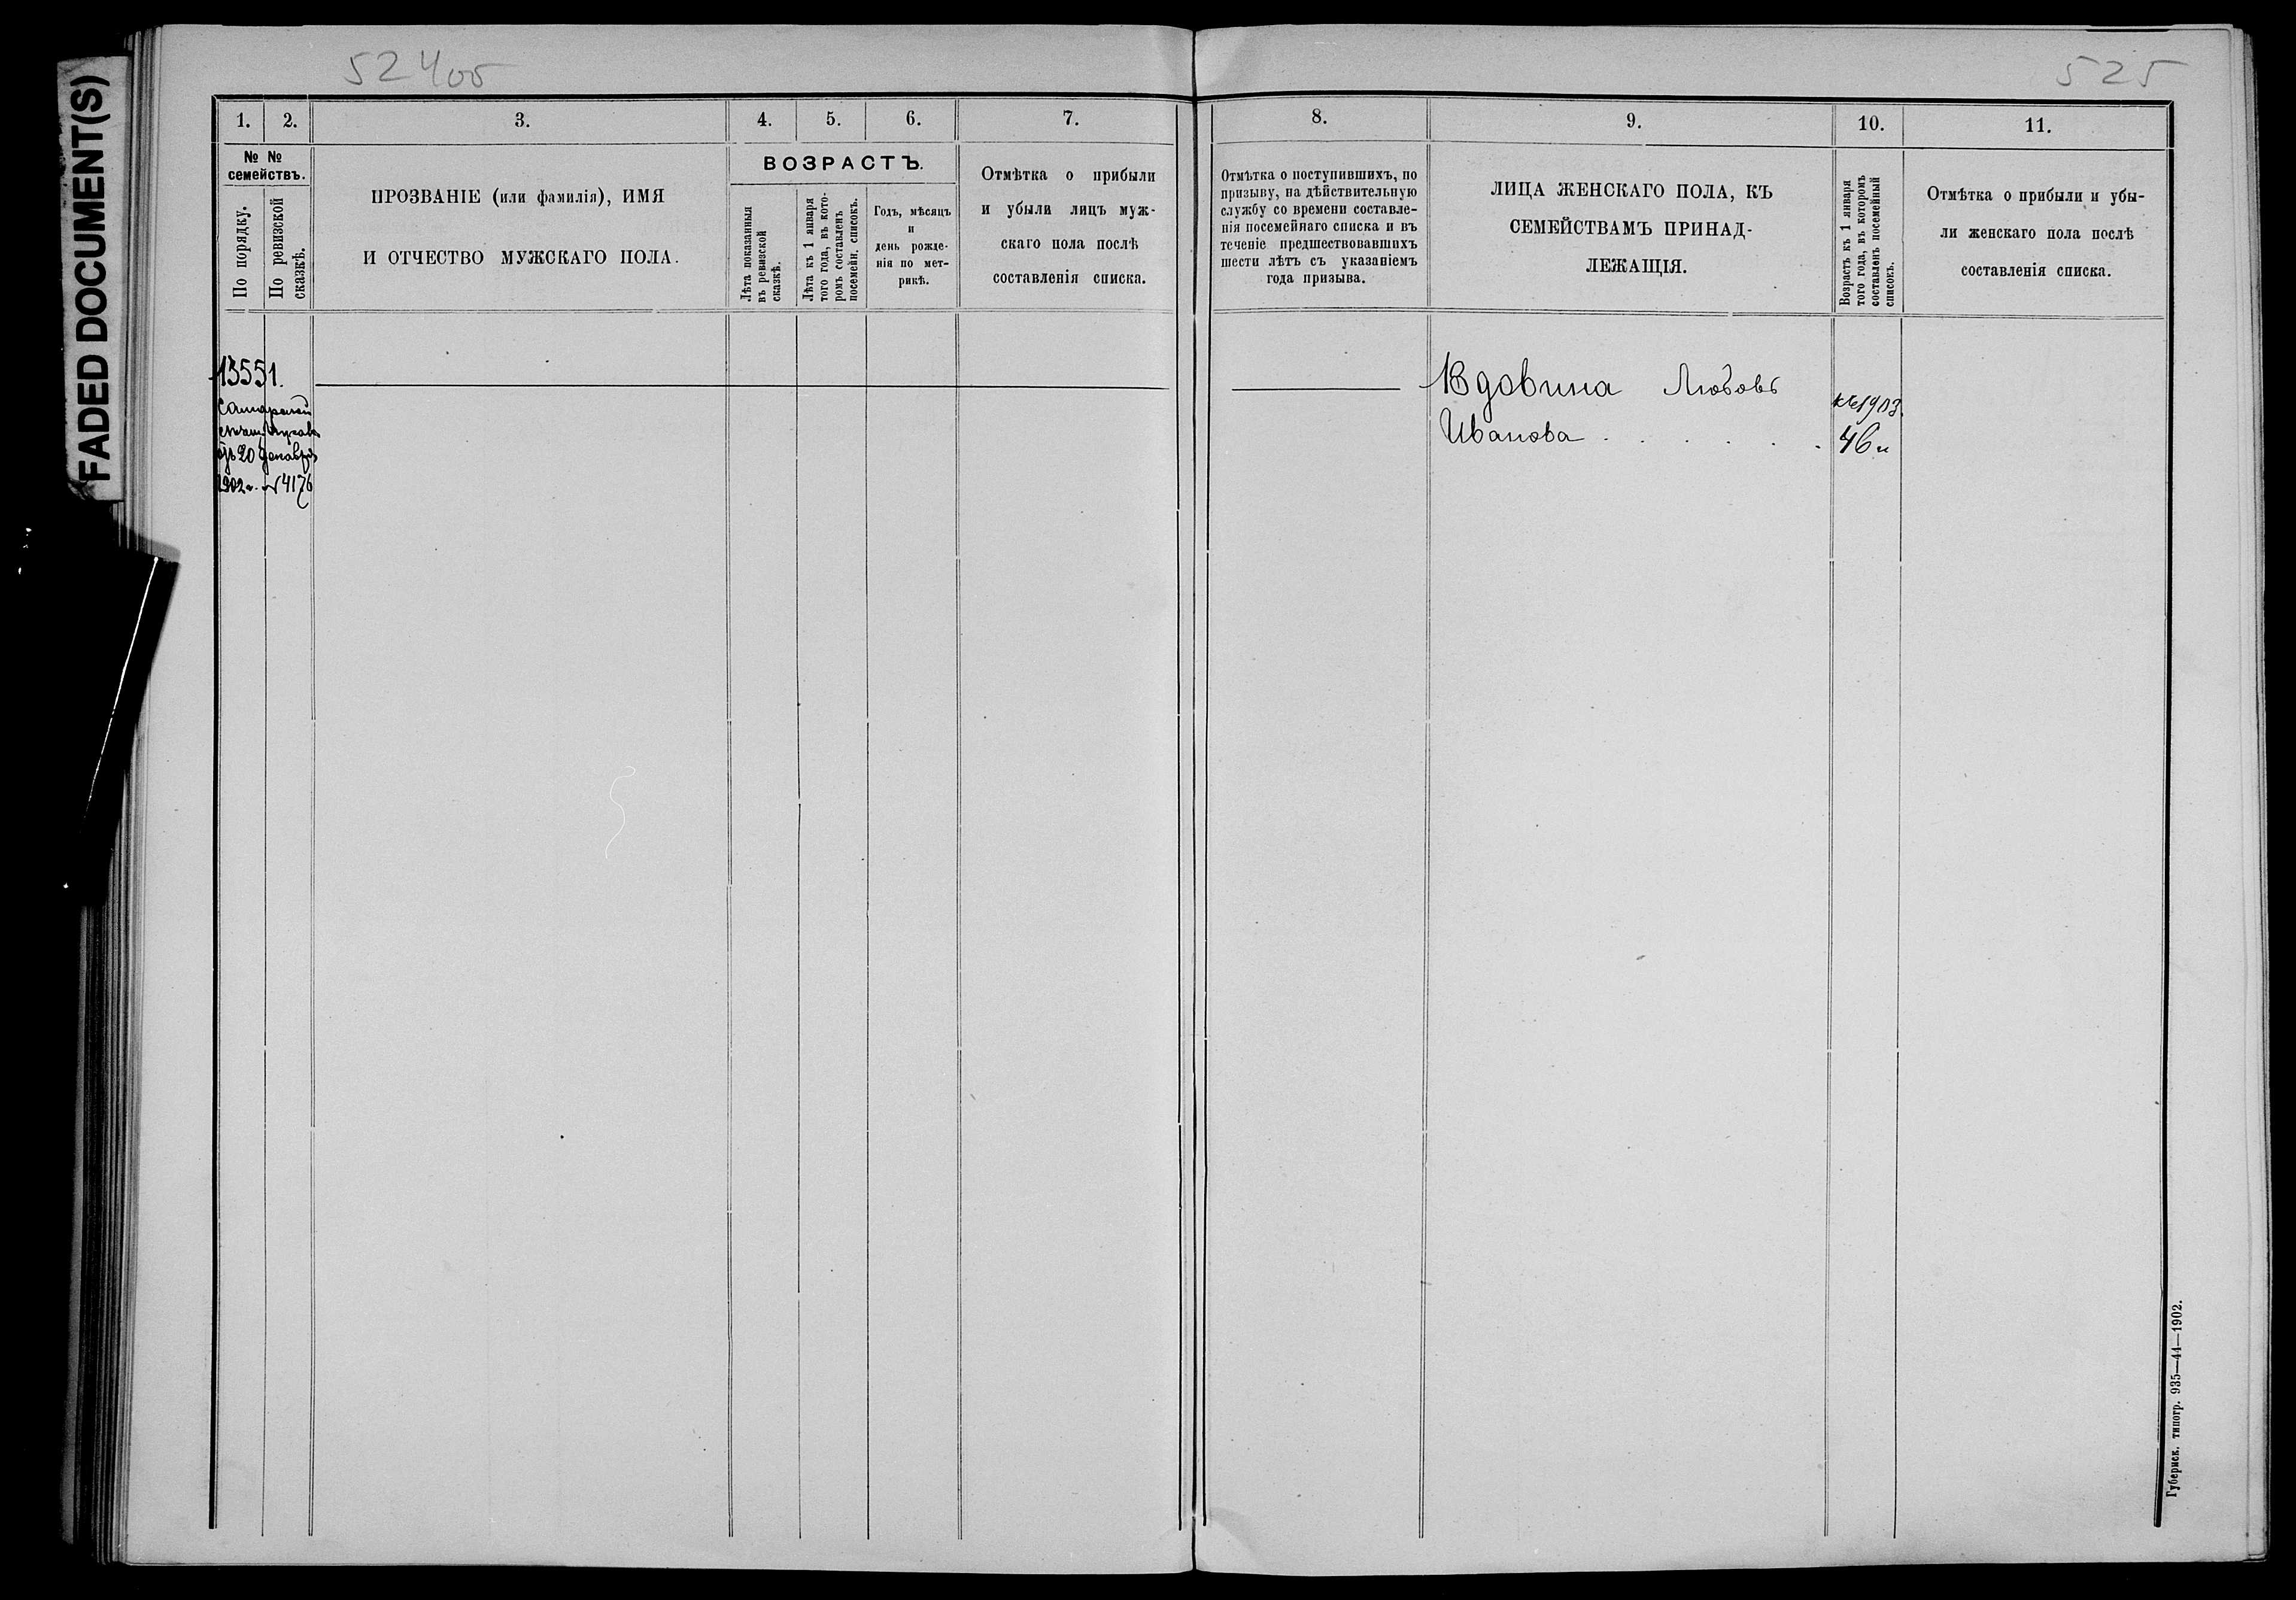 FADED DOCUMENT(S)
524об
525
1. 2. 3. 4. 5. 6. 7.
№ №
семействъ.
По порядку.
По ревизской
сказкѣ.
ПРОЗВАНІЕ (или фамилія), ИМЯ
И ОТЧЕСТВО МУЖСКАГО ПОЛА.
ВОЗРАСТЪ.
Лѣта показанныя
въ ревизской
сказкѣ.
Лѣта къ 1 января
того года, въ кото-
ромъ составленъ
посемейн. списокъ.
Годъ, мѣсяцъ
и
день рожде-
нія по мет-
рикѣ.
Отмѣтка о прибыли
и убыли лицъ муж-
скаго пола послѣ
составленія списка.
13551.
отъ 20 декабря
1902 г. № 4176
8. 9. 10. 11.
Отмѣтка о поступившихъ, по
призыву, на дѣйствительную
службу со времени составле-
нія посемейнаго списка и въ
теченіе предшествовавшихъ
шести лѣтъ съ указаніемъ
года призыва.
ЛИЦА ЖЕНСКАГО ПОЛА, КЪ
СЕМЕЙСТВАМЪ ПРИНАД-
ЛЕЖАЩІЯ.
Возрастъ къ 1 января
того года, въ которомъ
составленъ посемейный
списокъ.
Отмѣтка о прибыли и убы-
ли женскаго пола послѣ
составленія списка.
Вдовина Любовь
къ 1903.
Иванова . . . . . .
46
Губернск. типогр. 935—44—1902.